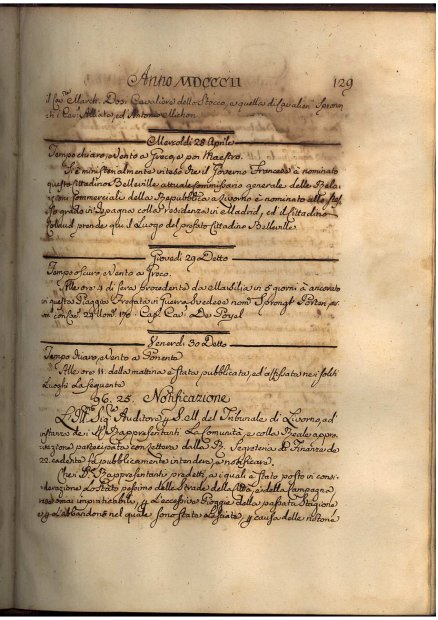 Anno MDCCCII 129
il Cav.e March. Dosi Cavaliere dello Stocco, e quella di Cavalieri Speron
Mercoldì 28 Aprile
Tempo chiaro, e Vento a Grecg e poi Maestro.
Si è ministerialmente inteso che il Governo Francese à nominato
questo Cittadino Belleville attuale Commissario generale delle Rela-
zioni Commerciali della Repubblica a Livorno è nominato allo stes
So grado in Spagna colla residenza in Madrid, ed il Cittadino
prende qui il Luogo del prefato Cittadino Belleville
Giovedì 29 Detto
Tempo oscuro, e Vento a
Alle ore 3 di sera procedente da Marsilia in 5 giorni à ancorato
in questa Piaggia Fregata in Guerra Svedese nom.
con Can. 24 Uom. 170. Cap.
Venerdì 30 Detto
Tempo chiaro, e Vento a Ponente
Alle ore 11. della mattina è stata pubblicata, ed affissata nei soliti
Luoghi La seguente
96. 25. Notificazione
L'Ill.mo Sig.e Auditore p. S. M. del Tribunale di Livorno, ad
instanza dei Rappresentanti La Comunità, e colla Reale appro-
vazione partecipata con Lettera dalla R. Segreteria di Finanze de
22. cadente fà pubblicamente intendere, e notificare.
Che i Rappresentanti predetti, a i quali è stato posto in consi-
derazione Lo stato pessimo delle Strade della Città, e della Campagna
rese omai impraticabili, p. L'eccessive Pioggie della passata Stagione
e p. L'abbandono nel quale sono state Lasciate p. causa delle notorie